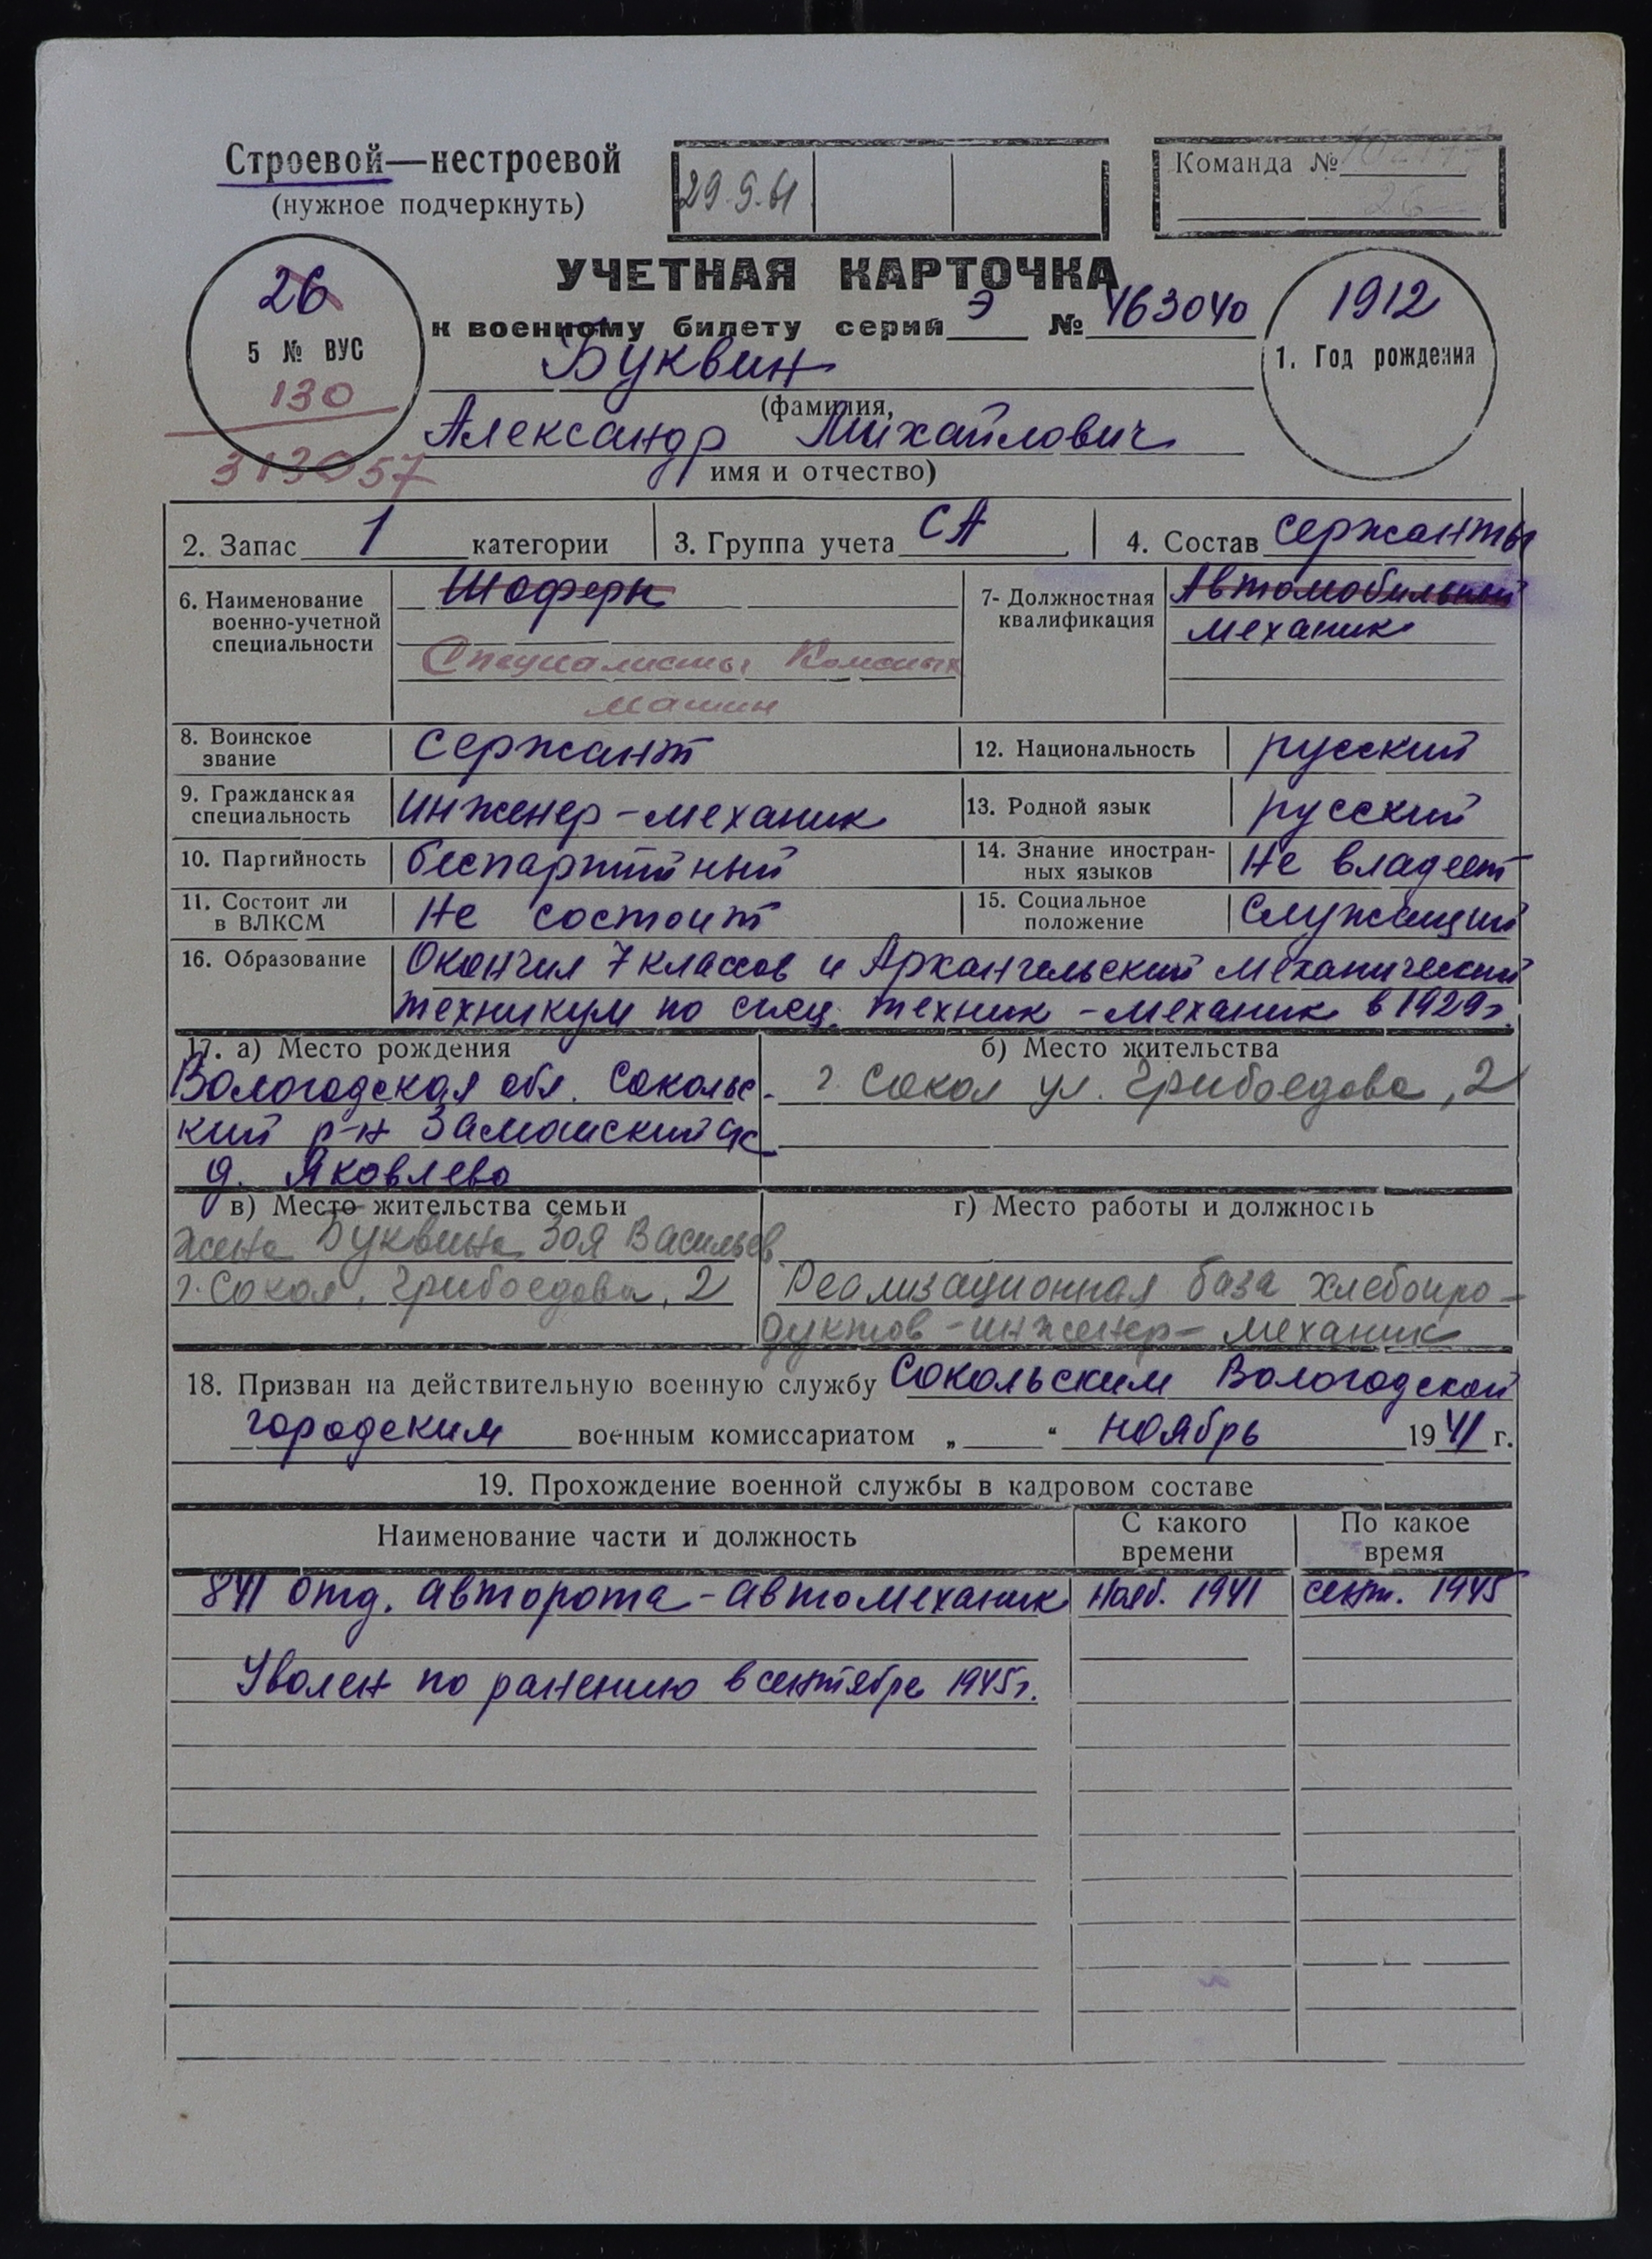 Строевой—нестроевой
(нужное подчеркнуть)
29.9.61
Команда №
26
УЧЕТНАЯ КАРТОЧКА
к военному билету серии Э № 463040
26
5 № ВУС
130
313057
1912
1. Год рождения
Буквин
(фамилия,
Александр Михайлович
имя и отчество)
2. Запас 1 категории
3. Группа учета СА
4. Состав сержанты
6. Наименование
военно-учетной
специальности
Шоферы
Специалисты
машин
7- Должностная
квалификация
Автомобильный
механик
8. Воинское
звание
сержант
12. Национальность
русский
9. Гражданская
специальность
инженер-механик
13. Родной язык
русский
10. Партийность
беспартийный
14. Знание иностран-
ных языков
Не владеет
11. Состоит ли
в ВЛКСМ
Не состоит
15. Социальное
положение
Служащий
16. Образование
Окончил 7 классов и Архангельский механический
техникум по спец. техник-механик в 1929г.
17. а) Место рождения
Вологодская обл. Сокольс-
кий р-н Замошский с/с
д. Яковлево
б) Место жительства
г. Сокол ул. Грибоедова, 2
в) Место жительства семьи
жена Буквина Зоя Васильев
г. Сокол, Грибоедова, 2
г) Место работы и должность
Реализационная база хлебопро-
дуктов - инженер-механик
18. Призван на действительную военную службу Сокольским Вологодской
городским военным комиссариатом „ “ ноябрь 1941 г.
19. Прохождение военной службы в кадровом составе
Наименование части и должность
С какого
времени
По какое
время
841 отд. авторота-автомеханик Нояб. 1941 сент. 1945
Уволен по ранению в сентябре 1945г.